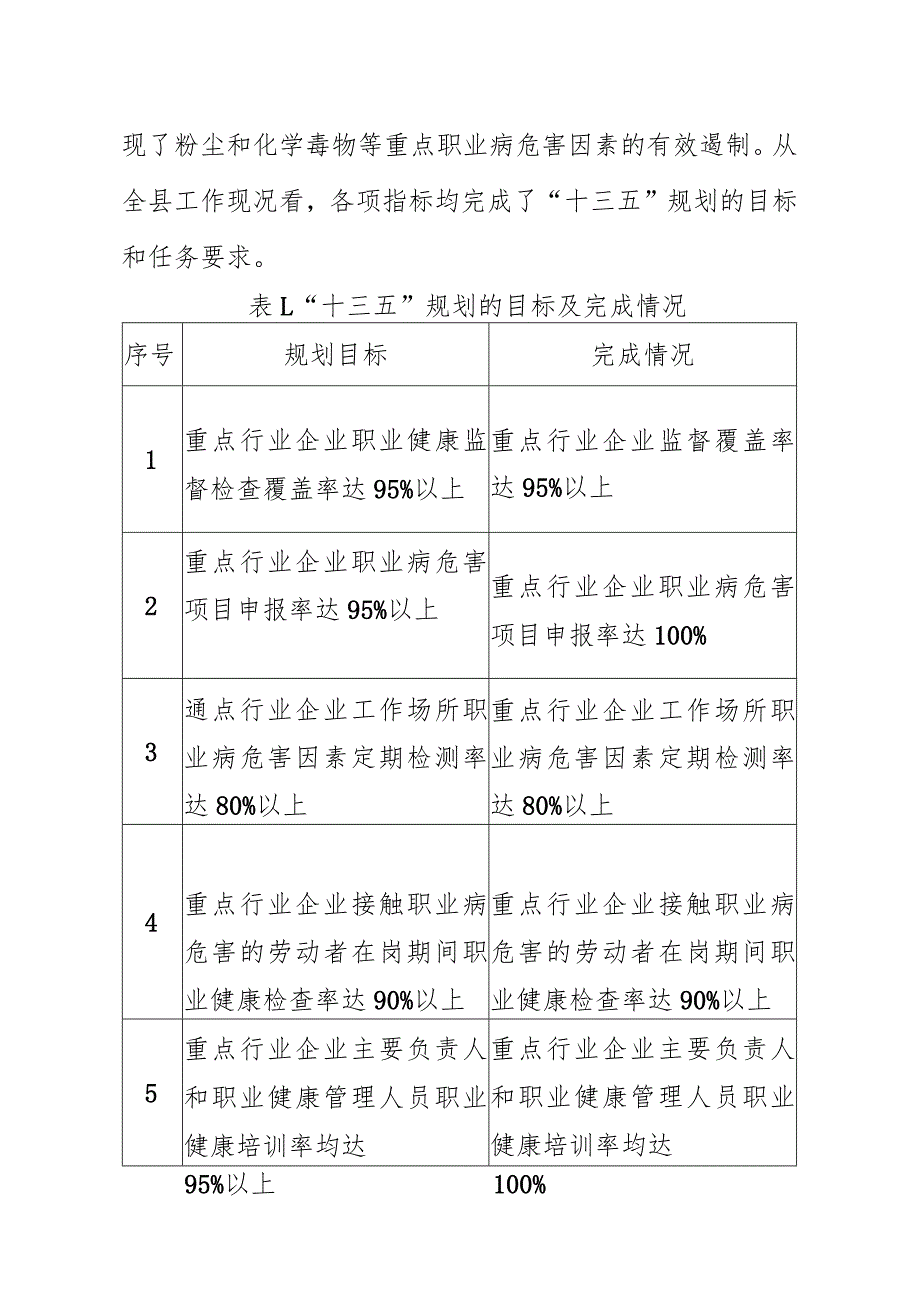 现了粉尘和化学毒物等重点职业病危害因素的有效遏制。从
全县工作现况看，各项指标均完成了“十三五”规划的目标
和任务要求。
表L“十三五”规划的目标及完成情况
序号 规划目标 完成情况
1
重点行业企业职业健康监
督检查覆盖率达95%以上
重点行业企业监督覆盖率
达95%以上
2
重点行业企业职业病危害
项目申报率达95%以上
重点行业企业职业病危害
项目申报率达100%
3
通点行业企业工作场所职
业病危害因素定期检测率
达80%以上
重点行业企业工作场所职
业病危害因素定期检测率
达80%以上
4
重点行业企业接触职业病
危害的劳动者在岗期间职
业健康检查率达90%以上
重点行业企业接触职业病
危害的劳动者在岗期间职
业健康检查率达90%以上
5
重点行业企业主要负责人
和职业健康管理人员职业
健康培训率均达
95%以上
重点行业企业主要负责人
和职业健康管理人员职业
健康培训率均达
100%